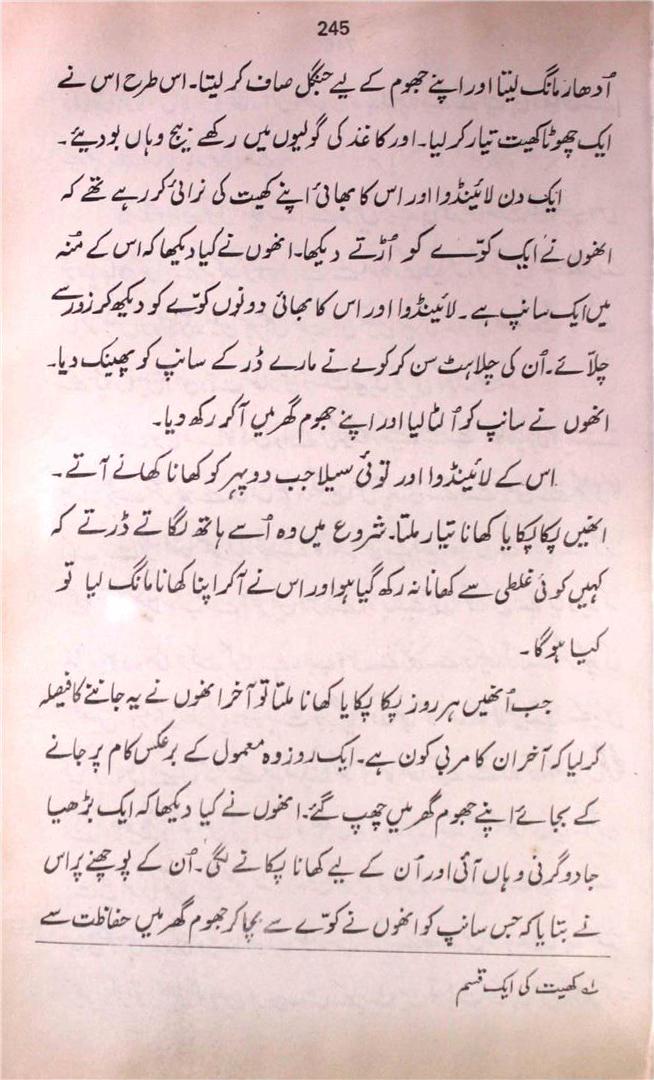 245
اُدھار مانگ لیتا اور اپنے جھوم کے لیے جنگل صاف کر لیتا۔ اس طرح اس نے
ایک چھوٹا کھیت تیار کر لیا۔ اور کاغذ کی گولیوں میں رکھے بیج وہاں بو دیئے۔
ایک دن لائینڈوا اور اس کا بھائی اپنے کھیت کی نرائی کر رہے تھے کہ
انھوں نے ایک کوّے کو اُڑتے دیکھا۔ انھوں نے کیا دیکھا کہ اس کے مُنہ
میں ایک سانپ ہے۔ لائینڈوا اور اس کا بھائی دونوں کوّے کو دیکھ کر زور سے
چلّائے۔ اُن کی چلاہٹ سن کر کوے نے مارے ڈر کے سانپ کو پھینک دیا۔
انھوں نے سانپ کو اُٹھا لیا اور اپنے جھوم گھر میں آکر رکھ دیا۔
اس کے لائینڈوا اور توئی سیلا جب دوپہر کو کھانا کھانے آتے۔
انھیں پکا پکایا کھانا تیار ملتا۔ شروع میں وہ اُسے ہاتھ لگاتے ڈرتے کہ
کہیں کوئی غلطی سے کھانا نہ رکھ گیا ہو اور اس نے آکر اپنا کھانا مانگ لیا تو
کیا ہوگا۔
جب اُنھیں ہر روز پکا پکایا کھانا ملتا تو آخر انھوں نے یہ جاننے کا فیصلہ
کر لیا کہ آخر ان کا مربی کون ہے۔ ایک روز وہ معمول کے برعکس کام پر جانے
کے بجائے اپنے جھوم گھر میں چھپ گئے۔ انھوں نے کیا دیکھا کہ ایک بڑھیا
جادوگرنی وہاں آئی اور اُن کے لیے کھانا پکانے لگی۔ اُن کے پوچھنے پر اس
نے بتایا کہ جس سانپ کو انھوں نے کوّے سے بچا کر جھوم گھر میں حفاظت سے
لہ کھیت کی ایک قسم